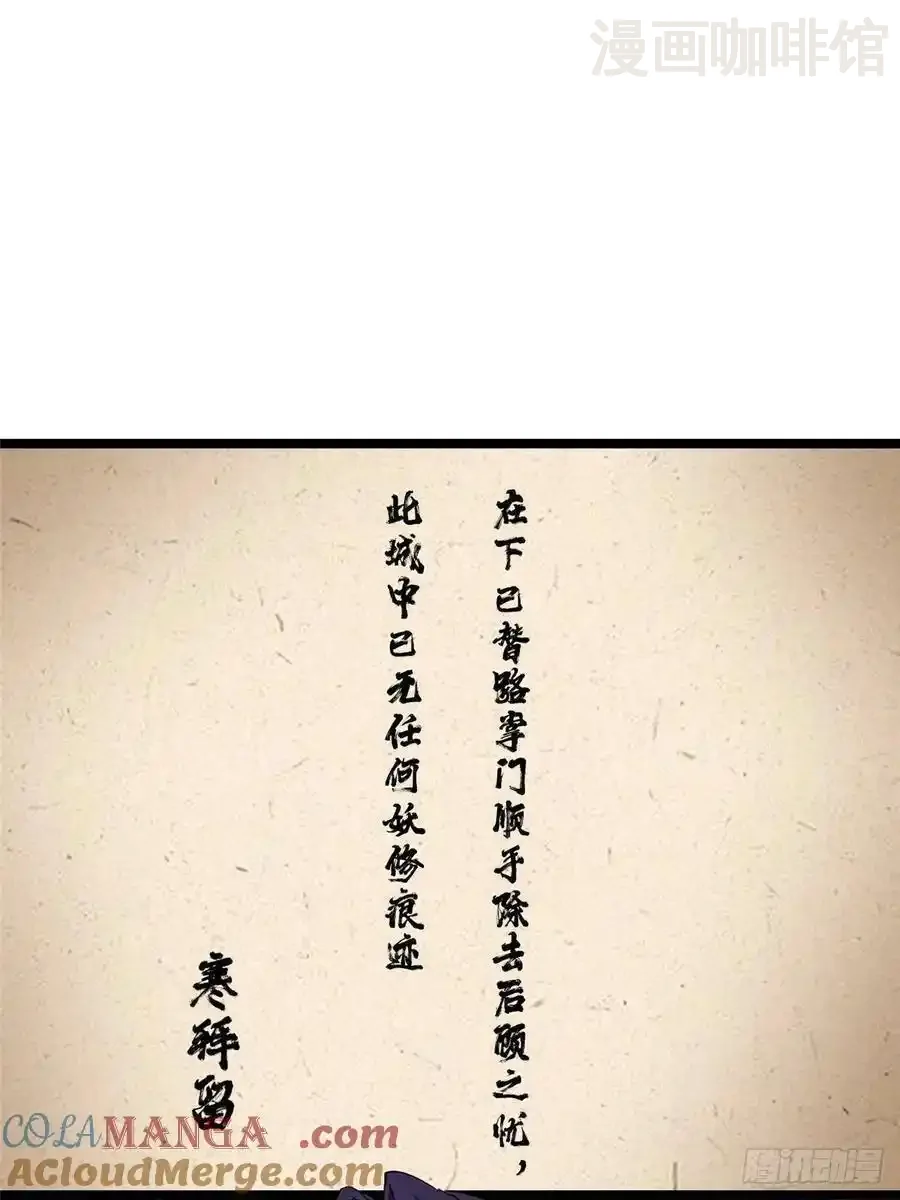 漫画咖啡馆
在下已替路掌门顺手除去后顾之忧，
此城中已无任何妖修痕迹
寒拜留
COLAMANGA.com
AcloudMerge.com
腾讯动漫